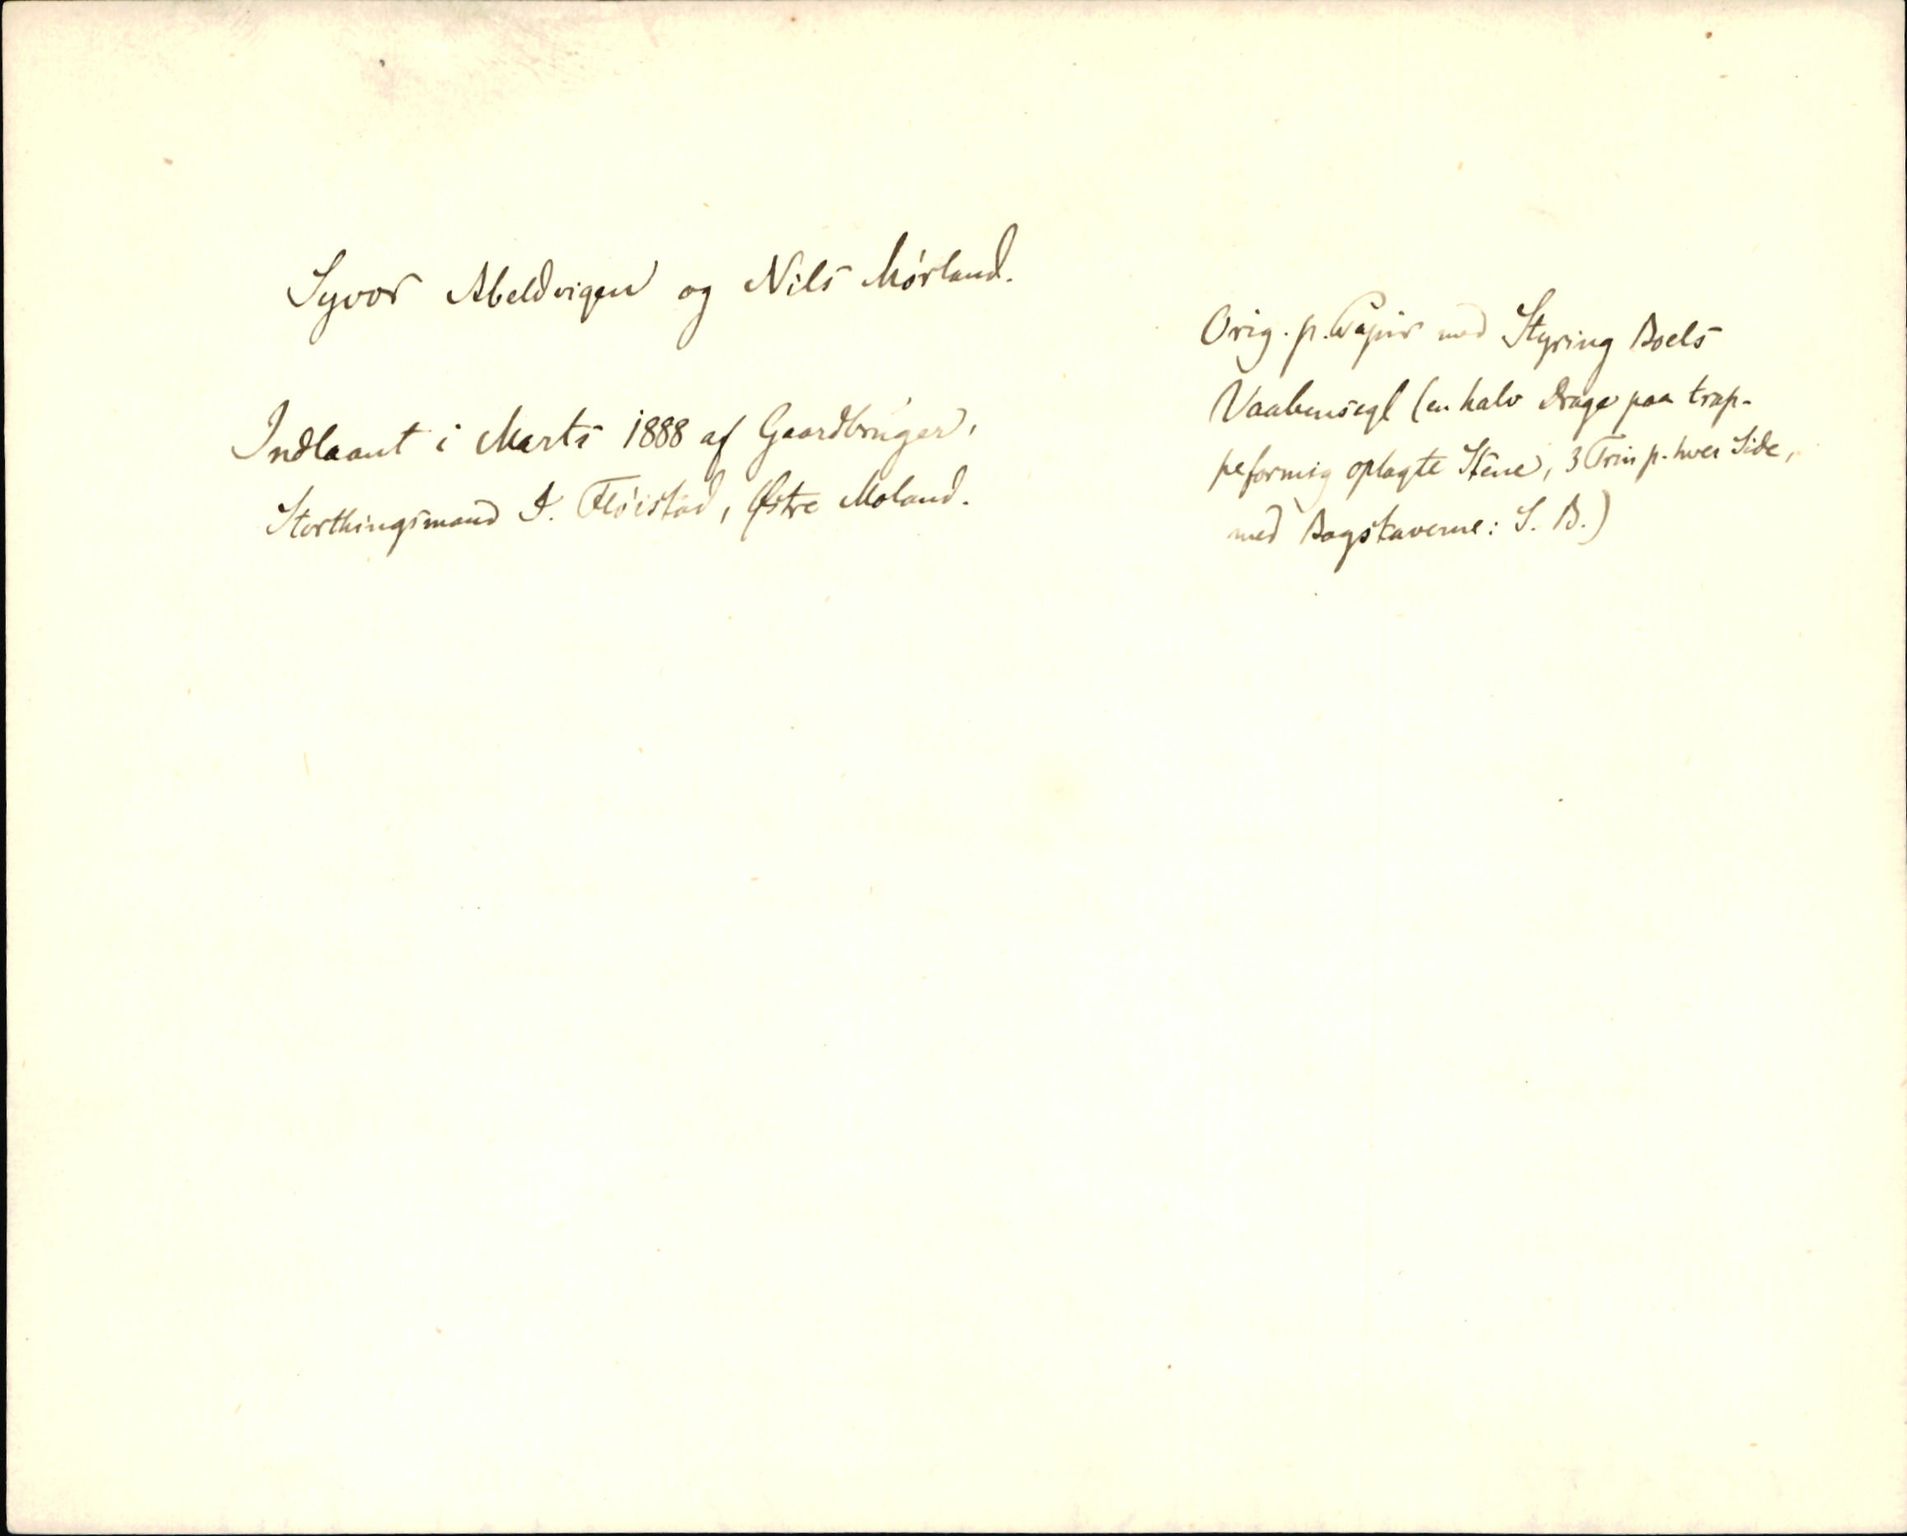 Syvor Abeldvigen og Nils Mörland.
Indlaant i Marts 1888 af Gaardbruger,
Storthingsmand I. Flöistad, Østre Moland.
Orig. p. Papir med Styring Boels
Vaabensegl (en halv Drage paa trap-
peformig oplagte Stene, 3 Trin p. hver Side,
med Bogstaverne: S. B.)